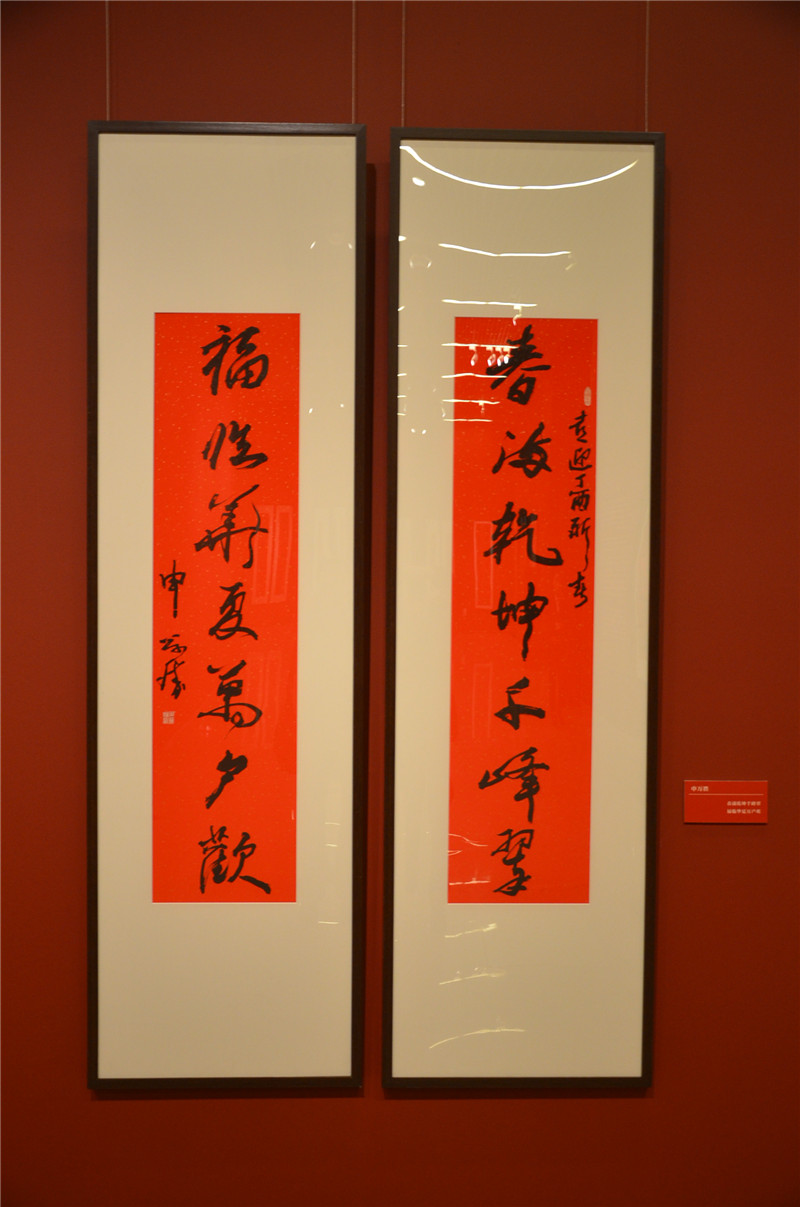 喜迎丁酉新春
春滿乾坤千峰翠
福临華夏萬户歡
申万胜
申万胜
春满乾坤千峰翠
福临华夏万户欢